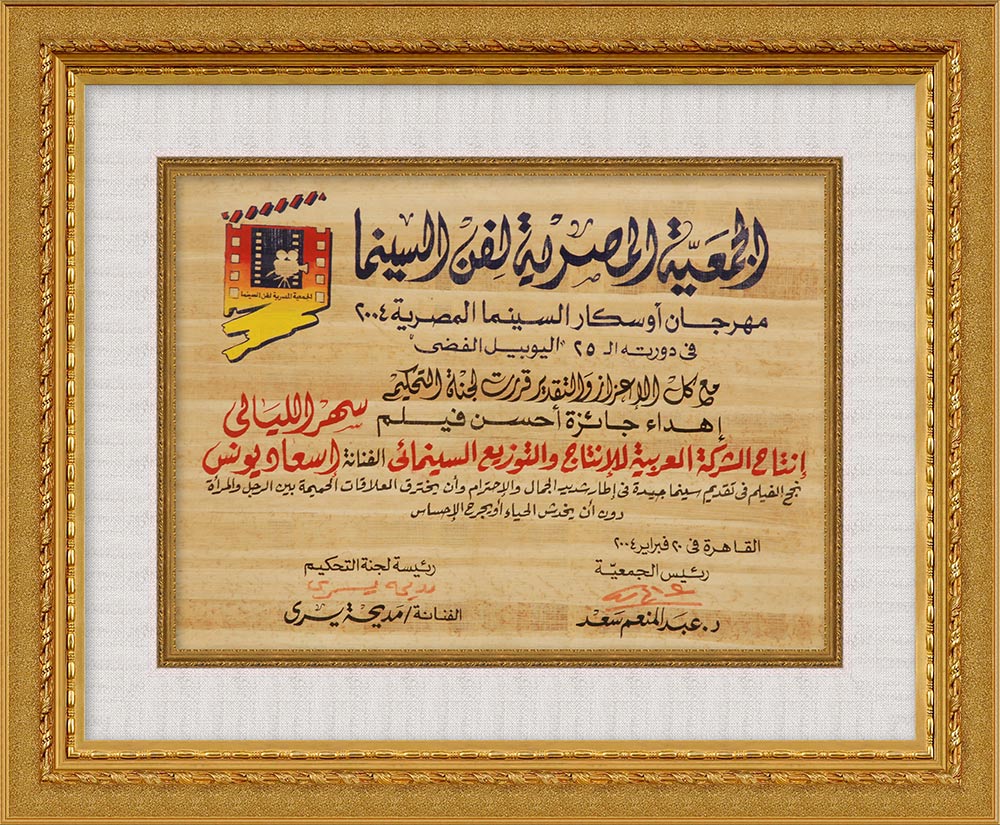 الجمعيّة المصرية لفن السينما
الجمعية المصرية لفن السينما
مهرجان أوسكار السينما المصرية ٢٠٠٤
فى دورته الـ ٢٥ "اليوبيل الفضى"
مع كل الإعزاز والتقدير قررت لجنة التحكيم
إهداء جائزة أحسن فيلم سهر الليالى
إنتاج الشركة العربية للإنتاج والتوزيع السينمائى الفنانة إسعاد يونس
نجح الفيلم فى تقديم سينما جيدة فى إطار شديد الجمال والإحترام وأن يخترق العلاقات الحميمة بين الرجل والمرأة
دون أن يخدش الحياء أو يجرح الإحساس
القاهرة فى ٢٠ فبراير ٢٠٠٤
رئيس الجمعيّة
رئيسة لجنة التحكيم
مديحة يسرى
د. عبد المنعم سعد
الفنانة / مديحة يسرى